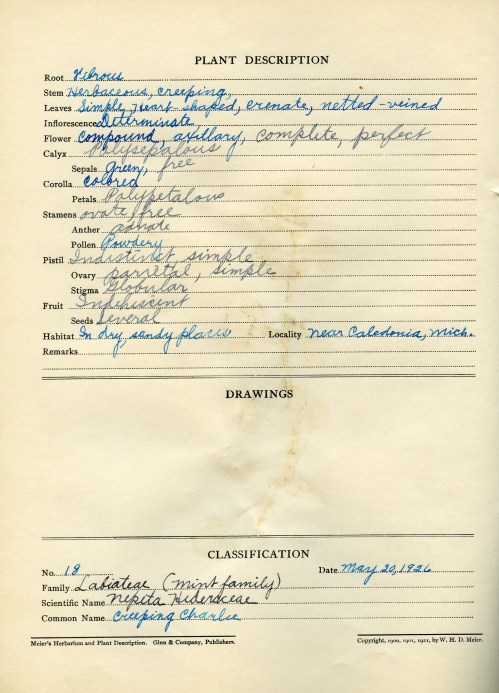 PLANT DESCRIPTION
Root Fibrous
Stem Herbaceous, creeping,
Leaves Simple, Heart-shaped, crenate, netted-veined
Inflorescence Determinate
Flower Compound, axillary, complete, perfect
Calyx Polysepalous
Sepals Green, free
Corolla colored
Petals Polypetalous
Stamens ovate, free
Anther adnate
Pollen Powdery
Pistil Indistinct, simple
Ovary parietal, simple
Stigma Globular
Fruit Indehiscent
Seeds Several
Habitat In dry, sandy places Locality near Caledonia, Mich.
Remarks
DRAWINGS
CLASSIFICATION
No. 18 Date May 20, 1926
Family Labiateae (mint family)
Scientific Name Nepeta Hederaceae
Common Name Creeping Charlie
Meier's Herbarium and Plant Description. Ginn & Company, Publishers. Copyright, 1900, 1901, 1921, by W. H. D. Meier.